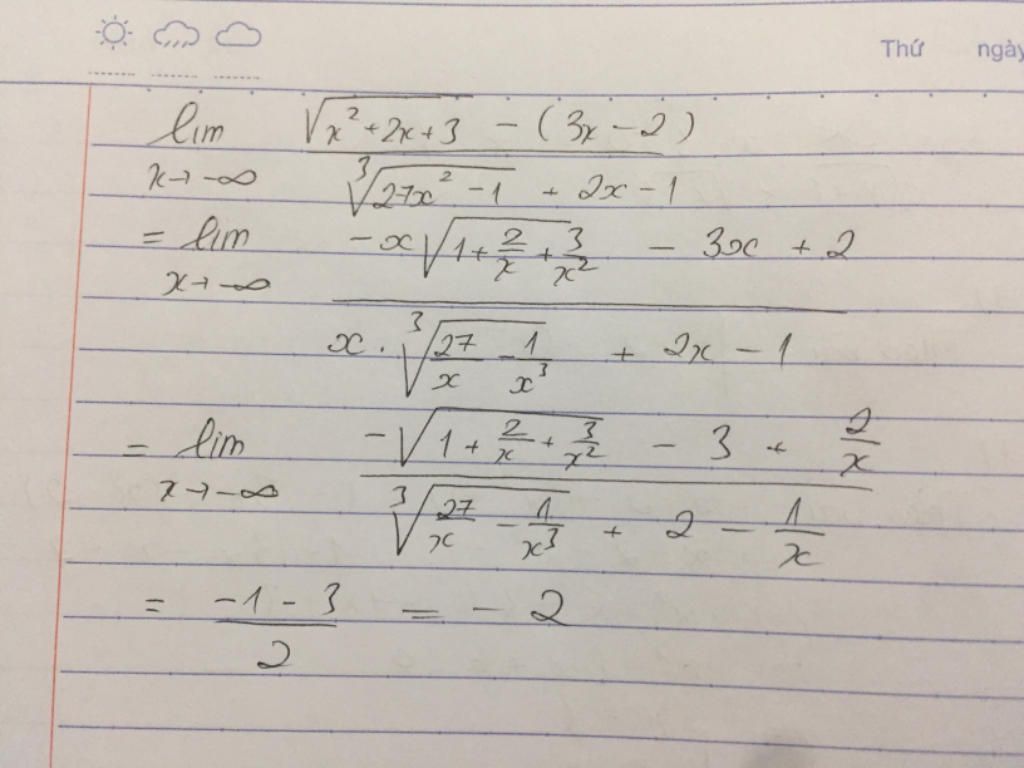 Thứ ngày
lim_{x→-∞} \frac{\sqrt{x^2+2x+3} - (3x-2)}{\sqrt[3]{27x^2-1} + 2x - 1}
= lim_{x→-∞} \frac{-x\sqrt{1+\frac{2}{x}+\frac{3}{x^2}} - 3x + 2}{x.\sqrt[3]{\frac{27}{x}-\frac{1}{x^3}} + 2x - 1}
= lim_{x→-∞} \frac{-\sqrt{1+\frac{2}{x}+\frac{3}{x^2}} - 3 + \frac{2}{x}}{\sqrt[3]{\frac{27}{x}-\frac{1}{x^3}} + 2 - \frac{1}{x}}
= \frac{-1-3}{2} = -2